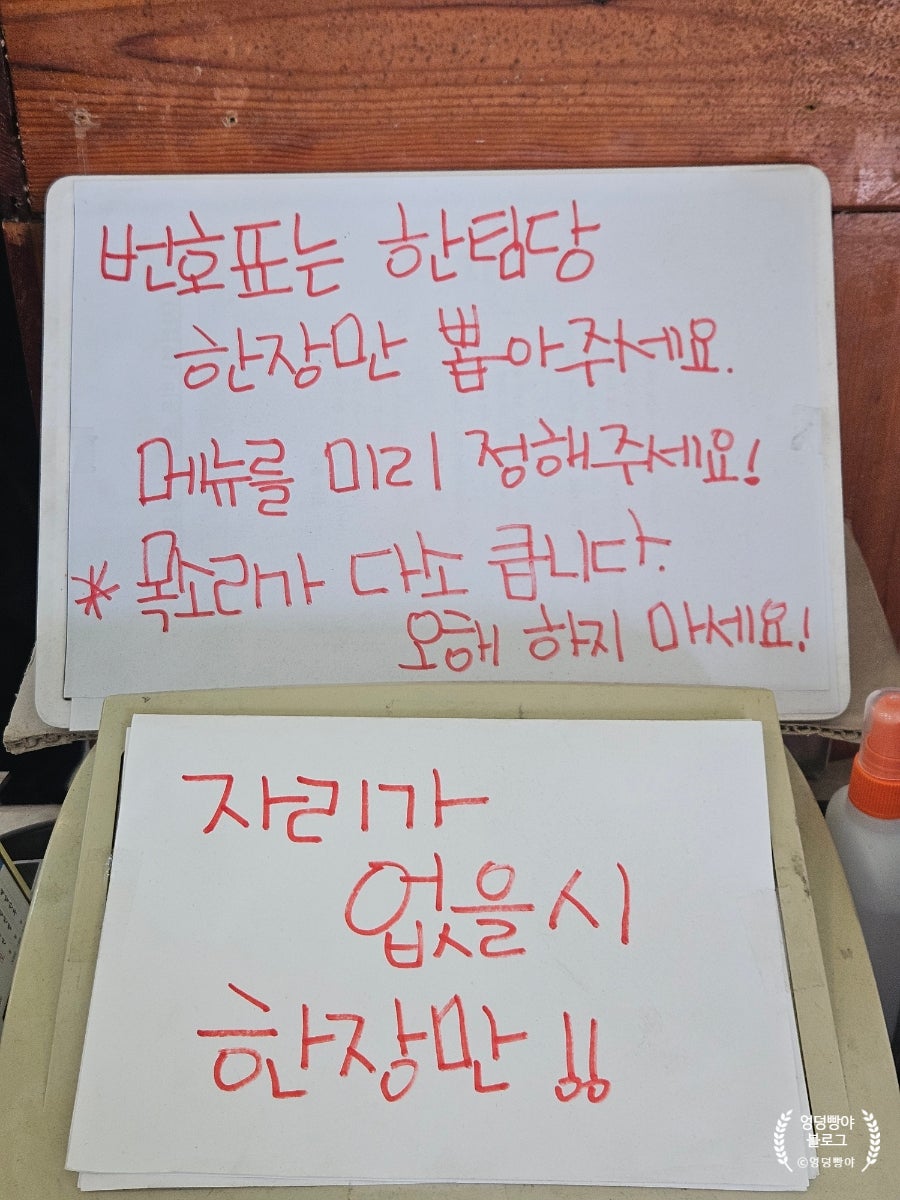 번호표는 한팀당
한장만 뽑아주세요.
메뉴를 미리 정해주세요!
* 목소리가 다소 큽니다.
오해 하지 마세요!
자리가
없을시
한장만!!
엉덩빵야
블로그
©엉덩빵야